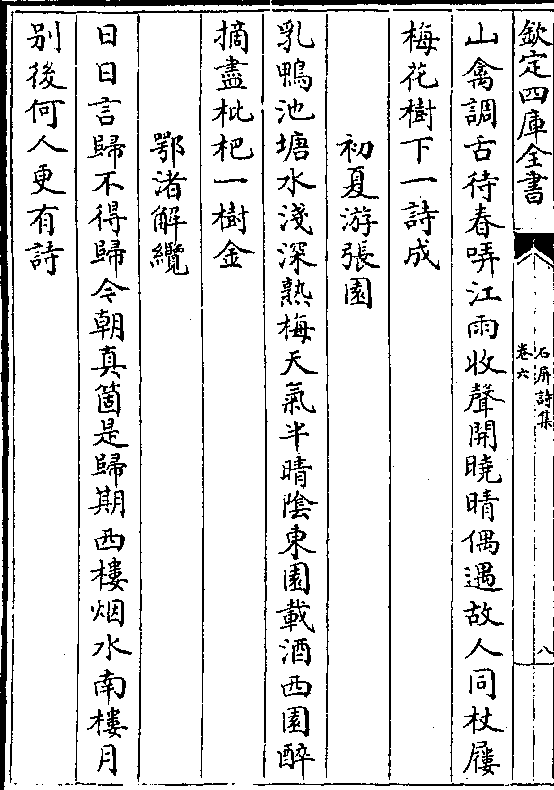 欽定四庫全書
石屏詩集
卷六
八
山禽調舌待春哢江雨收聲開曉晴偶遇故人同杖屨
梅花樹下一詩成
初夏游張園
乳鴨池塘水淺深熟梅天氣半晴陰東園載酒西園醉
摘盡枇杷一樹金
鄂渚解纜
日日言歸不得歸今朝真箇是歸期西樓烟水南樓月
别後何人更有詩